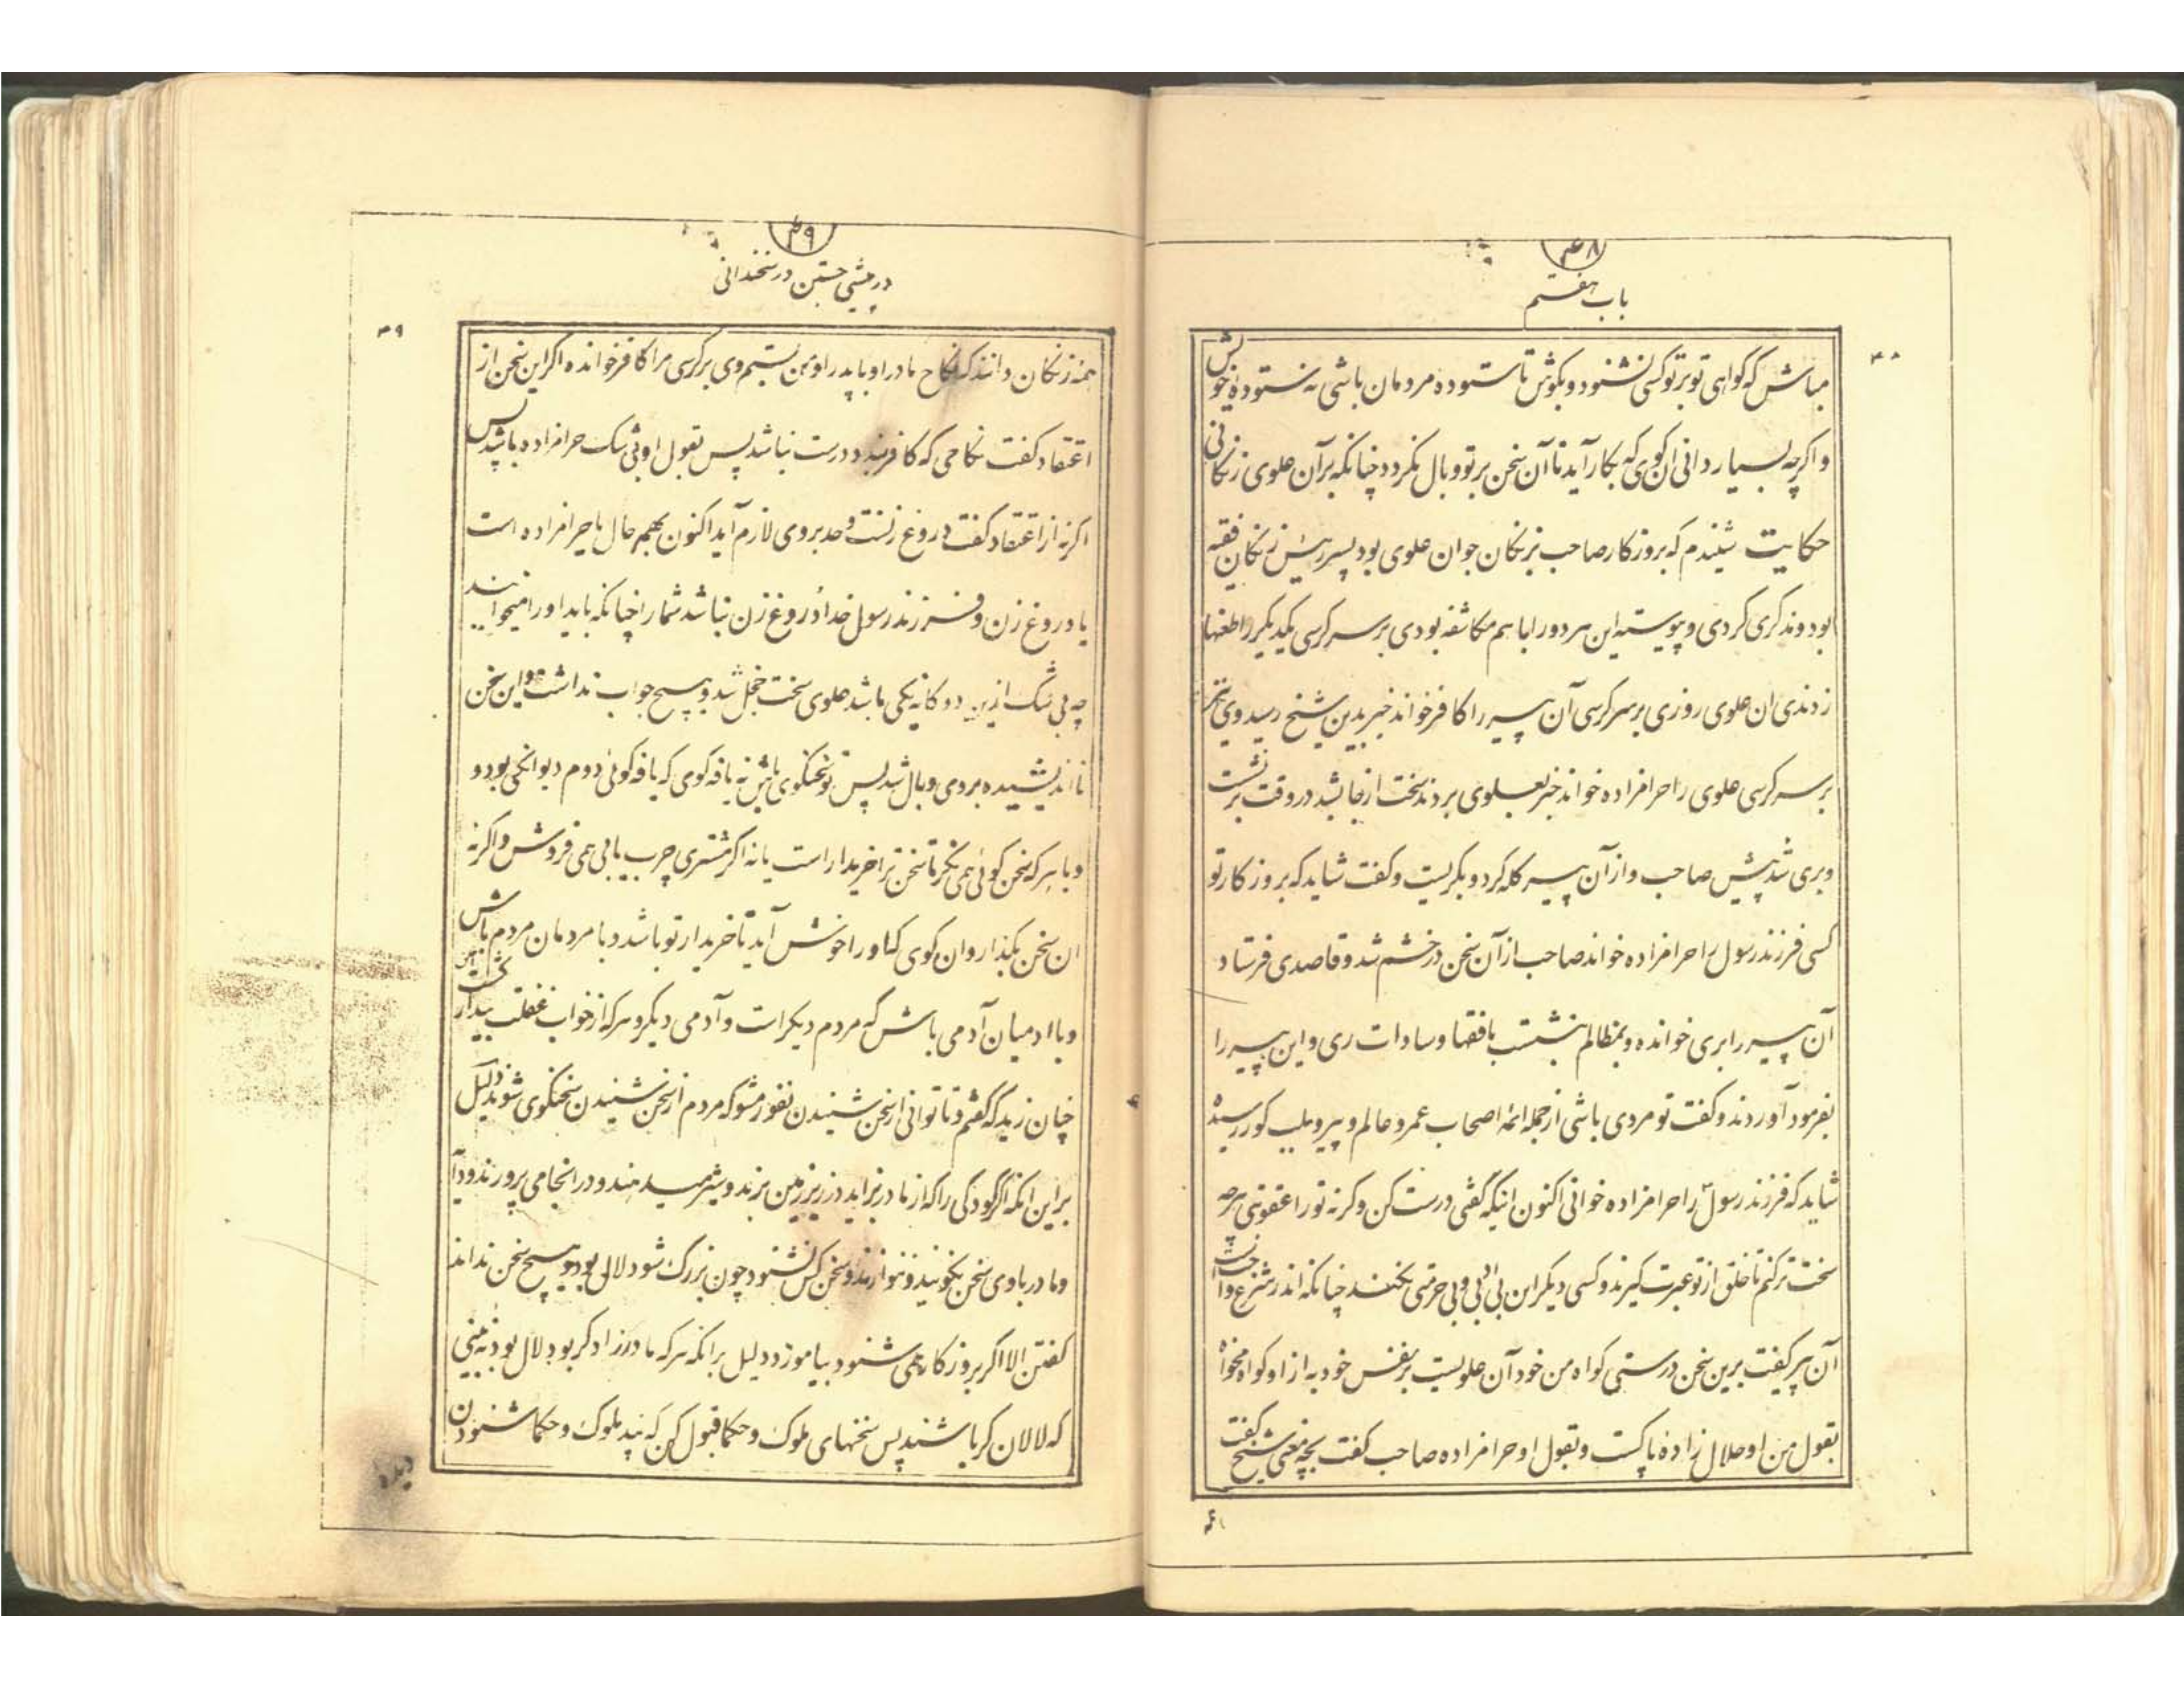 ۴۸
باب هفتم
۴۸
مباش که گواهی تو بر تو کسی نشنود و بکوش تا ستوده مردمان باشی نه ستوده خویش
و اگرچه بسیار دانی آن گوی که بکار آید تا آن سخن بر تو وبال نگردد چنانکه بر آن علوی زنگانی
حکایت شنیدم که بروزگار صاحب بزنگان جوان علوی بود پسر رئیس زنگان فقیه
بود و مذکری کردی و پیوسته این هر دو را با هم مکاشفه بودی بر سر کرسی یکدیگر را طعنها
زدندی ان علوی روزی بر سر کرسی آن پیر را کافر خواند خبر بدین شیخ رسید وی نیز
بر سر کرسی علوی را حرامزاده خواند خبر بعلوی بردند سخت از جا بشد در وقت برنشست
و بری شد پیش صاحب و از آن پیر گله کرد و بگریست و گفت شاید که بروزگار تو
کسی فرزند رسول را حرامزاده خواند صاحب از آن سخن در خشم شد و قاصدی فرستاد
آن پیر را بری خوانده و بمظالم بنشست با فقها و سادات ری و این پیر را
بفرمود آوردند و گفت تو مردی باشی از جمله ائمه اصحاب عمر و عالم و پیر و بلب گور رسیده
شاید که فرزند رسول را حرامزاده خوانی اکنون اینکه گفتی درست کن و گرنه تو را عقوبتی هرچه
سخت تر کنم تا خلق از تو عبرت گیرند و کسی دیگر این بی ادبی و بی حرمتی نکنند چنانکه اندر شرع واجبست
آن پیر گفت برین سخن درستی گواه من خود آن علویست بر نفس خود به از او گواه مخواه
بقول من او حلال زاده پاکست و بقول او حرامزاده صاحب گفت بچه معنی شیخ گفت
۴۹
در پیشی جستن در سخندانی
۴۹
همه زنگان دانند که نکاح مادر او با پدر او من بستم وی بر کرسی مرا کافر خوانده اگر این سخن از
اعتقاد گفت نکاحی که کافر بندد درست نباشد پس بقول او بی شک حرامزاده باشد پس
اگر نه از اعتقاد گفت دروغ زنست و حد بر وی لازم آید اکنون بهمه حال یا حرامزاده است
یا دروغ زن و فرزند رسول خدا دروغ زن نباشد شما را چنانکه باید او را میخوانید
چه بی شک ازین دوگانه یکی باشد علوی سخت خجل شد و هیچ جواب نداشت و این سخن
نااندیشیده بر وی وبال شد پس تو سخنگوی باش نه یافه گوی که یافه گوئی دوم دیوانگی بود و
و با هر که سخن گوئی همی نگر تا سخن ترا خریدار است یا نه اگر مشتری چرب یابی همی فروش و اگر نه
ان سخن بگذار و ان گوی کاو را خوش آید تا خریدار تو باشد و با مردمان مردم باش
و با ادمیان آدمی باش که مردم دیگر است و آدمی دیگر و هر که از خواب غفلت بیدار گشت
چنان زید که گفتم و تا توانی از سخن شنیدن نفور مشو که مردم از سخن شنیدن سخنگوی شوند دلیل
بر این انکه اگر کودکی را که از مادر بزاید در زیر زمین برند و شیر میدهند و در انجا می پرورند و دایه
و مادر با وی سخن نگویند و ننوازند و سخن کس نشنود چون بزرگ شود لال بود و هیچ سخن نداند
گفتن الا اگر بروزگار همی شنود بیاموزد دلیل برانکه هر که مادرزاد کر بود لال بود نه بینی
که لالان کر باشند پس سخنهای ملوک و حکما قبول کن که پند ملوک و حکما شنودن
دیده